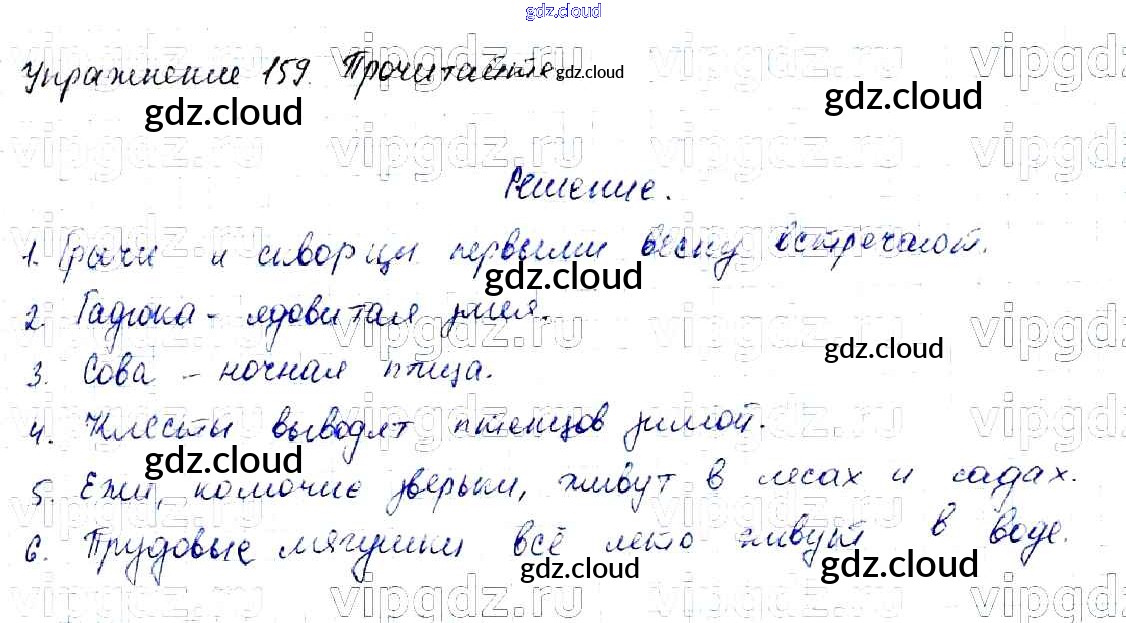 gdz.cloud
Упражнение 159. Прочитайте gdz.cloud
gdz.cloud gdz.cloud
vipgdz.ru vipgdz.ru vipgdz.ru vipgdz.ru
Решение.
1. Грачи и скворцы первыми весну встречают.
gdz.cloud
2. Гадюка - ядовитая змея.
gdz.cloud
3. Сова - ночная птица.
4. Клесты выводят птенцов зимой.
gdz.cloud
5. Ежи, колючие зверьки, живут в лесах и садах.
6. Прудовые лягушки всё лето живут в воде.
gdz.cloud gdz.cloud
vipgdz.ru vipgdz.ru vipgdz.ru vipgdz.ru